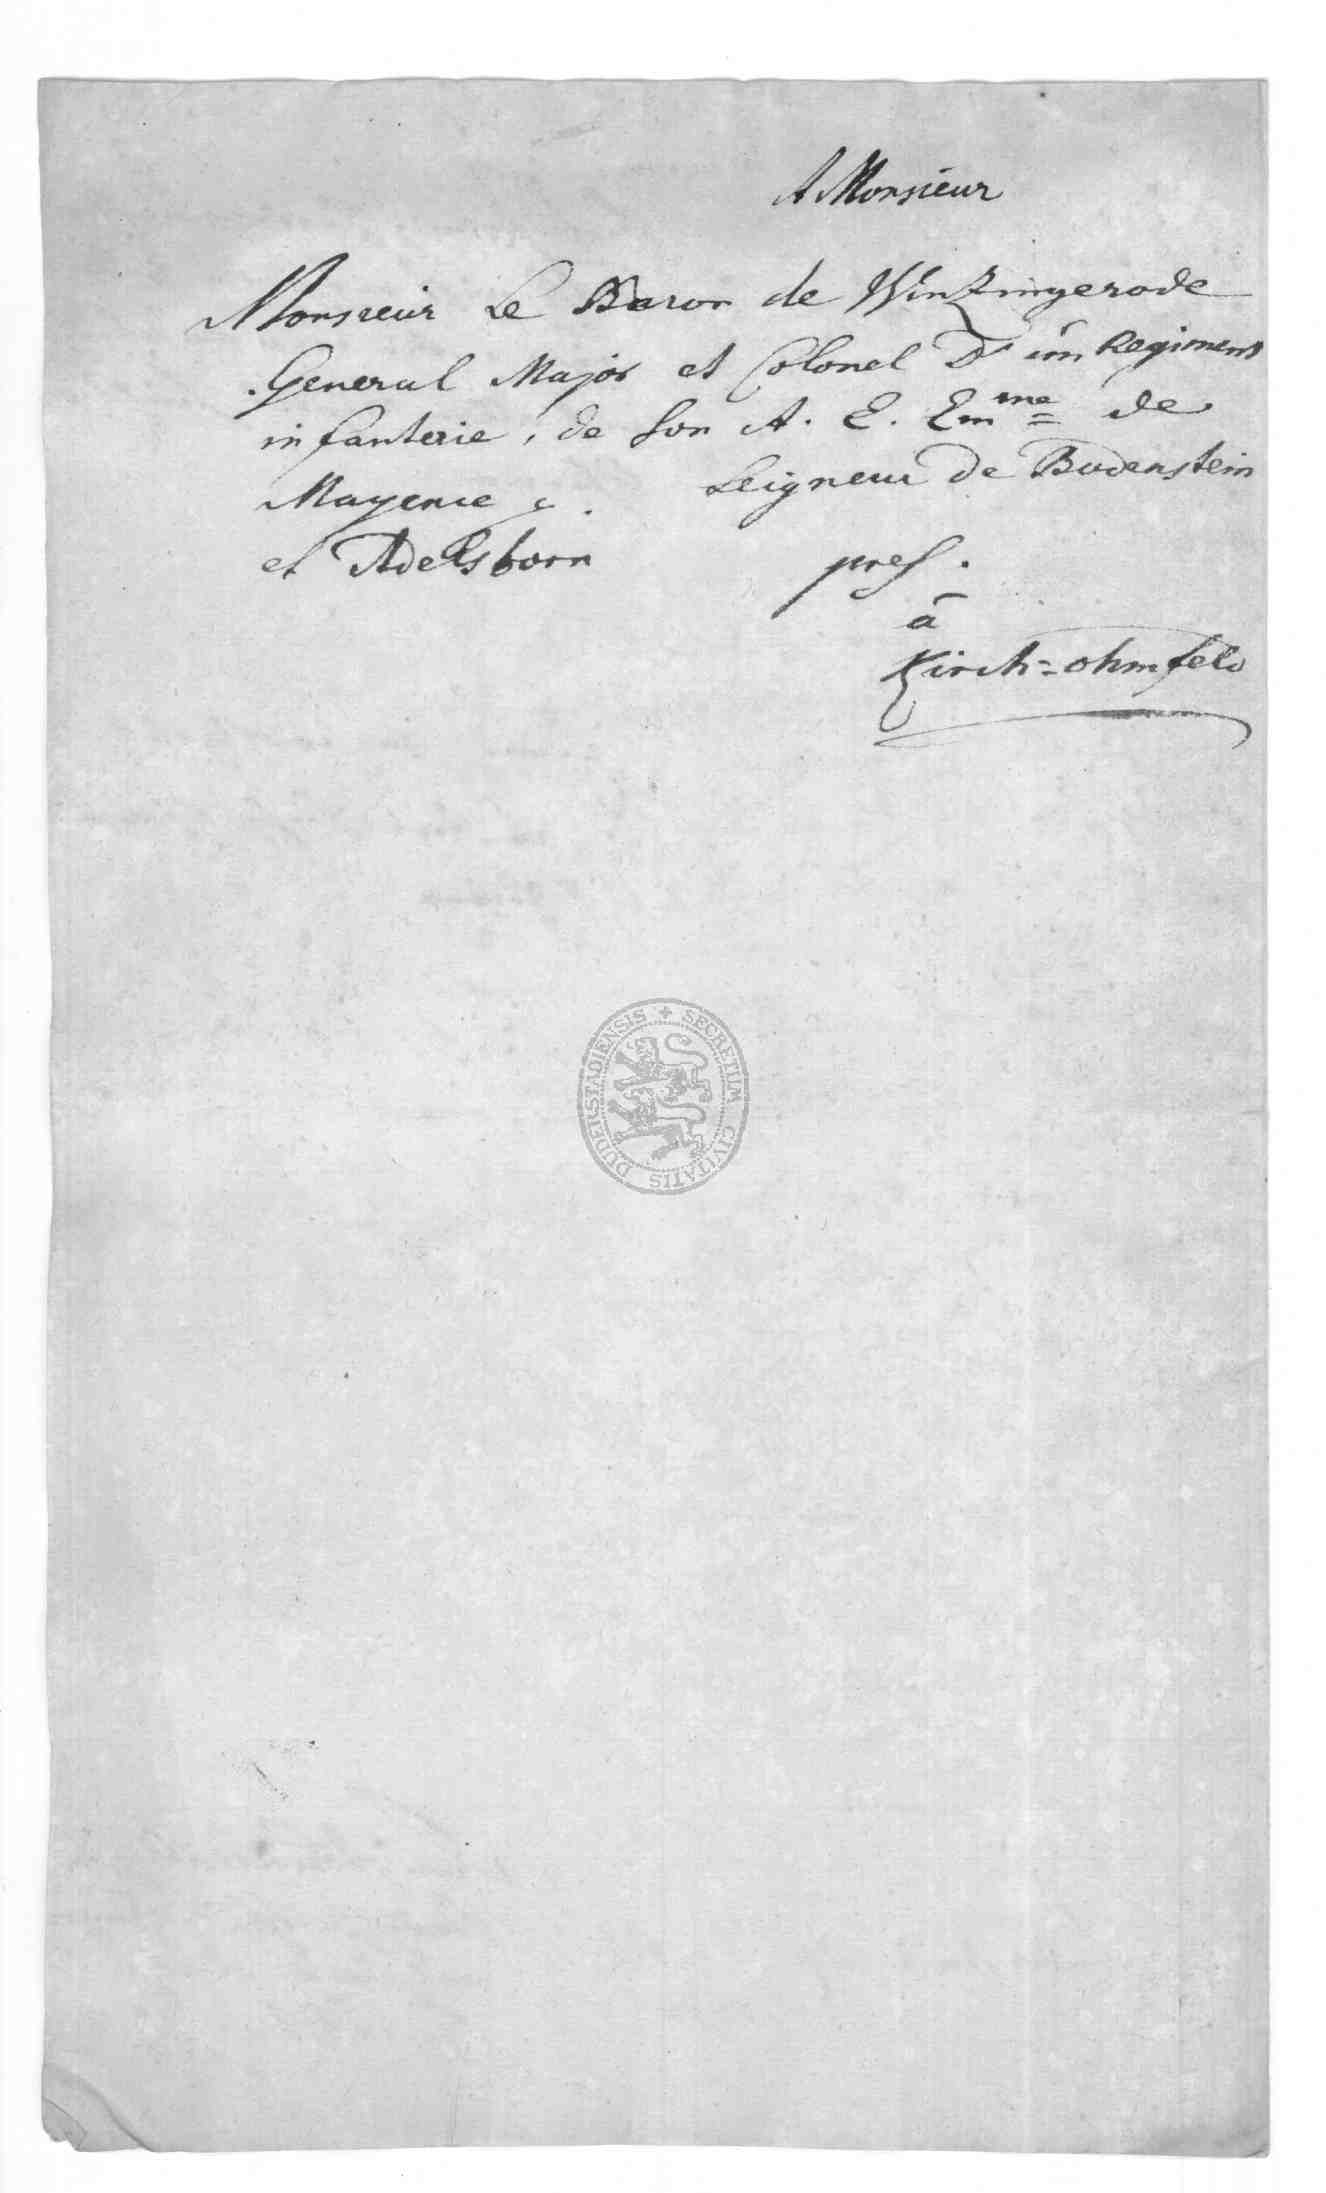 A Monsieur
Monsieur Le Baron de Winzingerode
General Major et Colonel D'un Regiment
infanterie, de Son A. E. Emme de
Mayence &. Seigneur de Bodenstein
et Adelsborn pres.
à
Kirch=ohmfeld
SECRETUM CIVITATIS DUDERSTADIENSIS